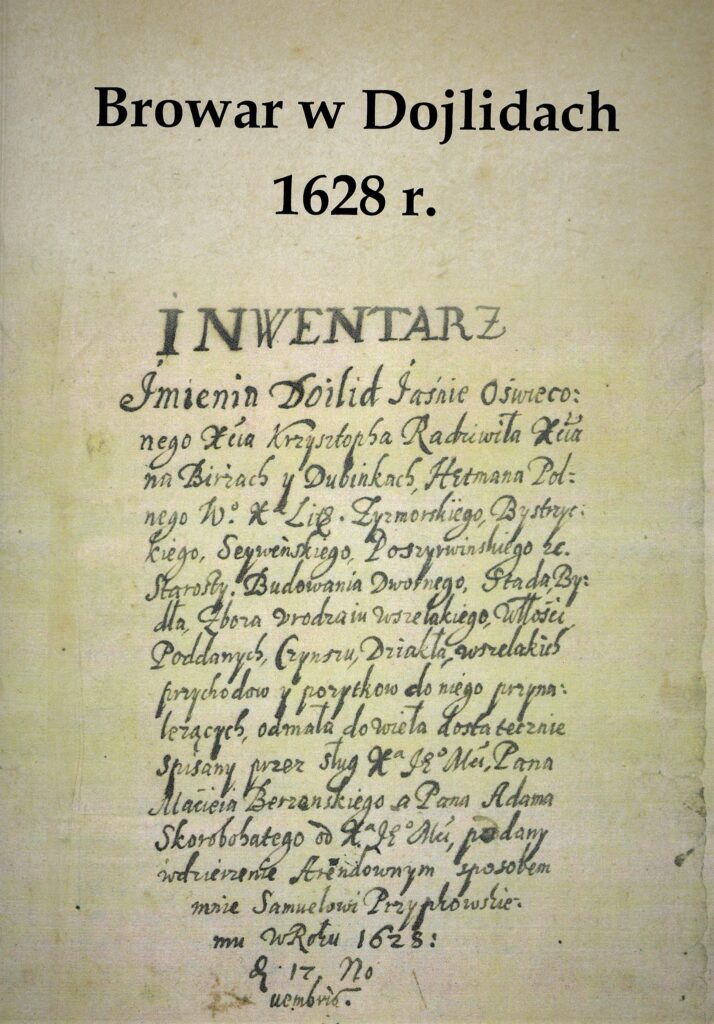 Browar w Dojlidach
1628 r.
INWENTARZ
Jmienia Doilid Jaśnie Oświeco:
nego Xcia Krzysztopha Radziwiła Xcia
na Birżach y Dubinkach, Hetmana Pol-
nego W.º Xª Lig. Zyzmorskiego, Bystrzyc:
kiego, Seyweńskiego, Poszyrwinskiego rc.
Starosty. Budowania Dwornego, Stada, By:
dła, Zbora vrodzaiu wszelakiego, Włości,
Poddanych, Czynszu, Dziakła, wszelakich
przychodow y pozytkow do niego przyna:
leżących, odmała do wiela dostatecznie
spisany przez sług Xª Jeº Mći, Pana
Macieia Berzanskiego a Pana Adama
Skorobohatego od Xª Jeº Mći, podany
wdzierzenie Arendownym sposobem
mnie Samuelowi Przypkowskie:
mu w Roku 1628:
17 No
uembris.